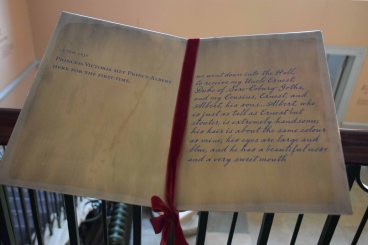 18 MAY 1836
PRINCESS VICTORIA MET PRINCE ALBERT
HERE FOR THE FIRST TIME.
we went down into the Hall,
to receive my Uncle Ernest,
Duke of Saxe-Coburg-Gotha,
and my Cousins, Ernest, and
Albert, his sons... Albert, who
is just as tall as Ernest but
stouter, is extremely handsome;
his hair is about the same colour
as mine; his eyes are large and
blue, and he has a beautiful nose
and a very sweet mouth